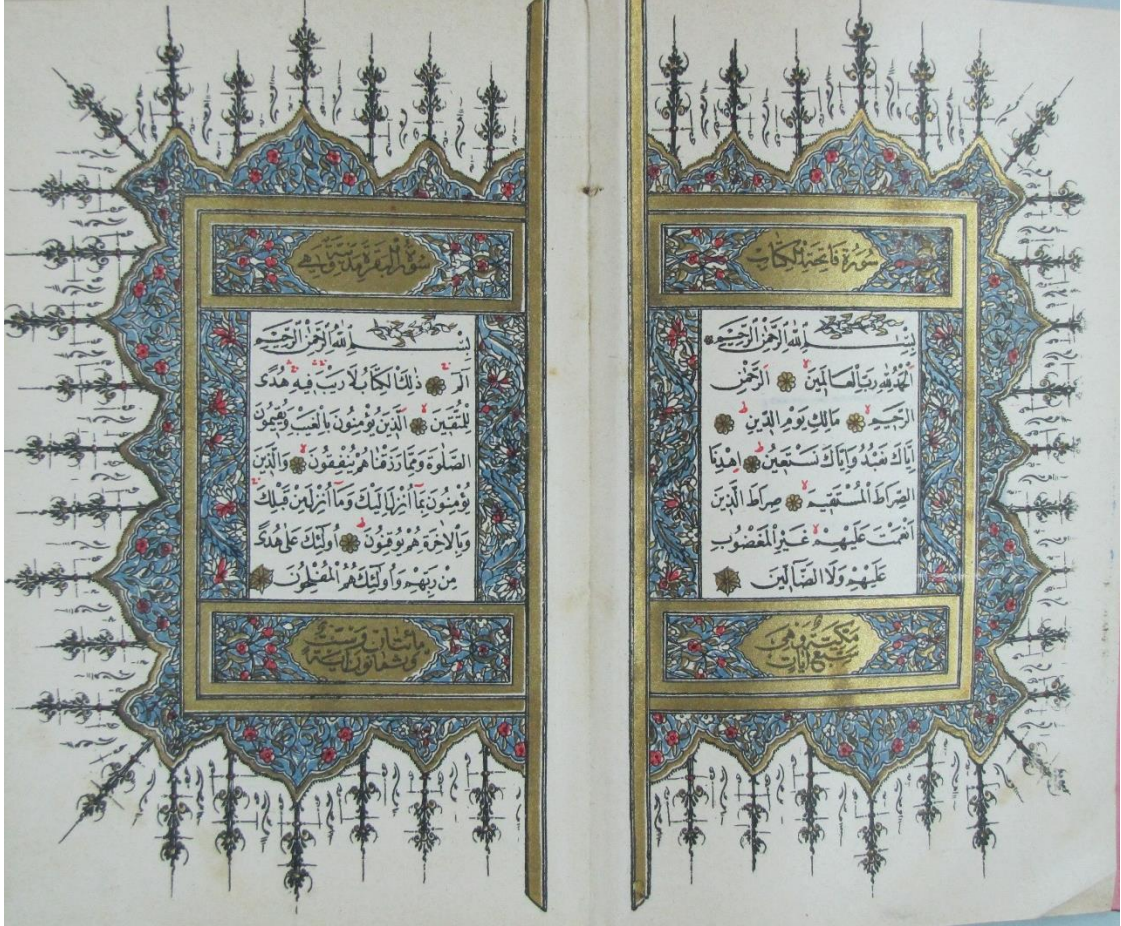 سورة فاتحة الكتاب
بِسْمِ اللّٰهِ الرَّحْمٰنِ الرَّحِيمِ
اَلْحَمْدُ لِلّٰهِ رَبِّ الْعَالَمِينَ اَلرَّحْمٰنِ
الرَّحِيمِ مَالِكِ يَوْمِ الدِّينِ
اِيَّاكَ نَعْبُدُ وَاِيَّاكَ نَسْتَعِينُ اِهْدِنَا
الصِّرَاطَ الْمُسْتَقِيمَ صِرَاطَ الَّذِينَ
اَنْعَمْتَ عَلَيْهِمْ غَيْرِ الْمَغْضُوبِ
عَلَيْهِمْ وَلَا الضَّالِّينَ
مكية وهي
سبع آيات
سورة البقرة مدنية وهي
بِسْمِ اللّٰهِ الرَّحْمٰنِ الرَّحِيمِ
الٓمٓ ذٰلِكَ الْكِتَابُ لَا رَيْبَ فِيهِ هُدًى
لِلْمُتَّقِينَ اَلَّذِينَ يُؤْمِنُونَ بِالْغَيْبِ وَيُقِيمُونَ
الصَّلٰوةَ وَمِمَّا رَزَقْنَاهُمْ يُنْفِقُونَ وَالَّذِينَ
يُؤْمِنُونَ بِمَٓا اُنْزِلَ اِلَيْكَ وَمَٓا اُنْزِلَ مِنْ قَبْلِكَ
وَبِالْاٰخِرَةِ هُمْ يُوقِنُونَ اُولٰٓئِكَ عَلٰى هُدًى
مِنْ رَبِّهِمْ وَاُولٰٓئِكَ هُمُ الْمُفْلِحُونَ
مائتان وست
وثمانون آية